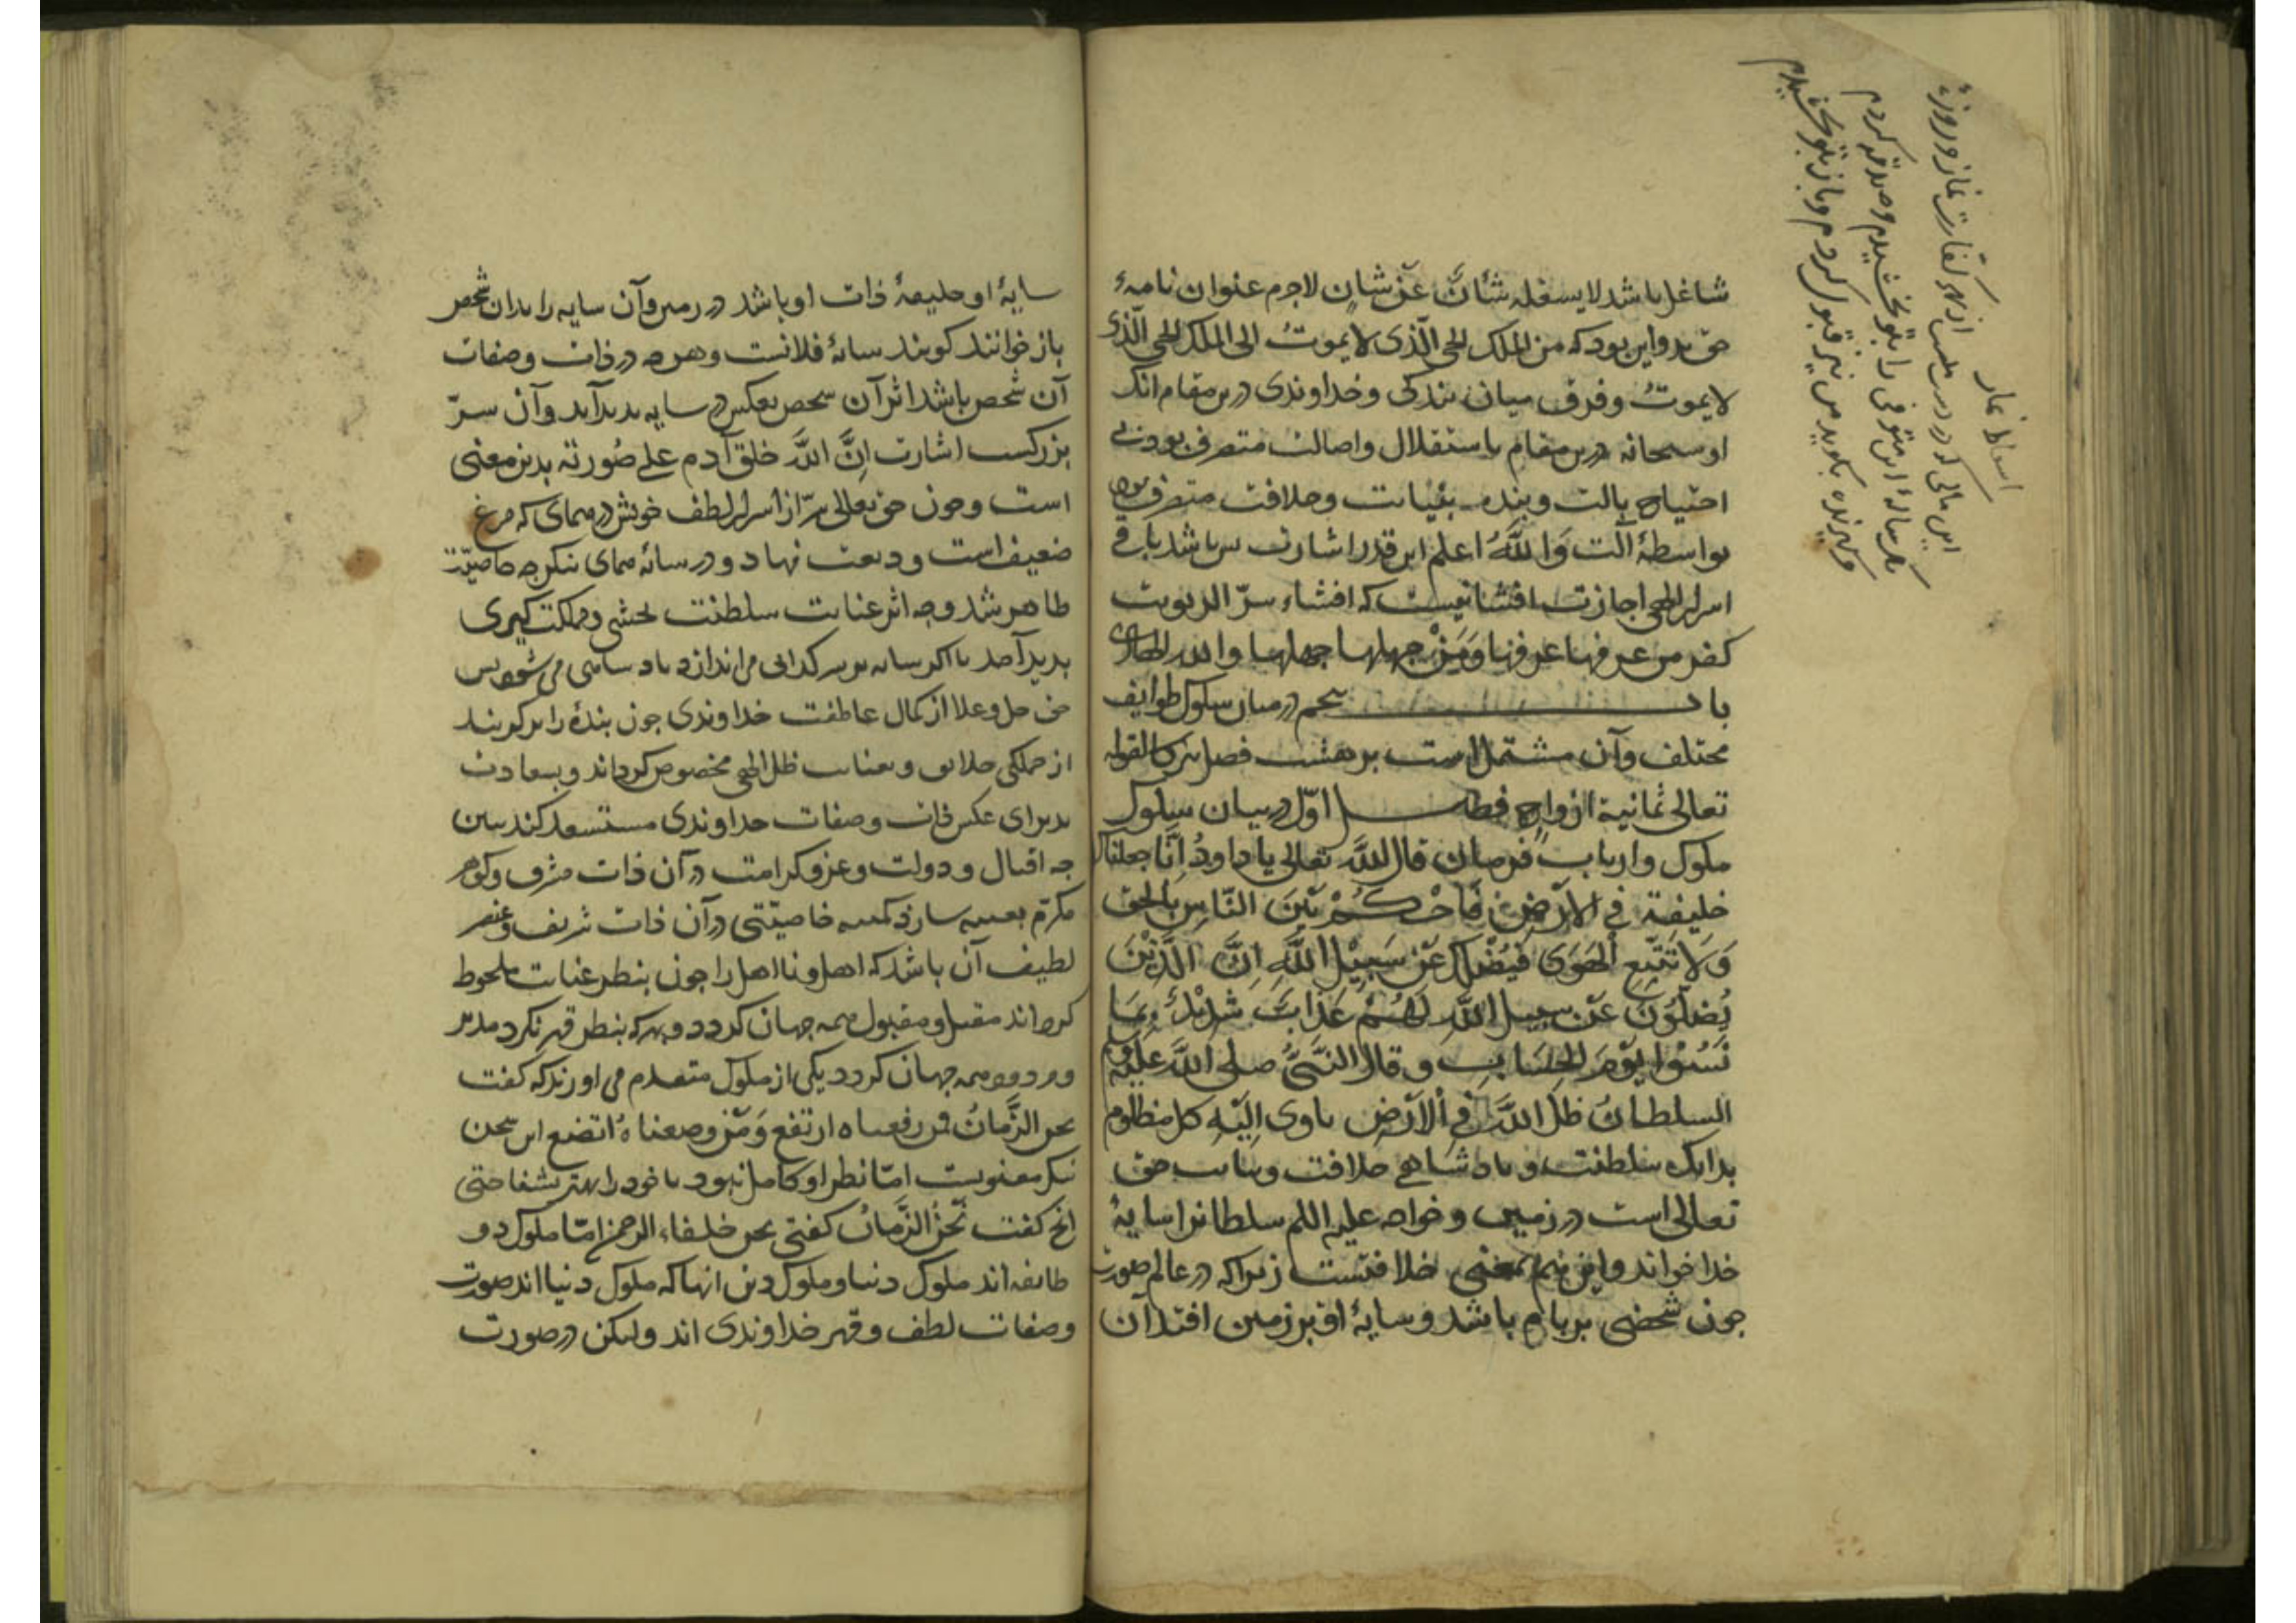 شاغل باشد لا یشغله شأن عن شان لاجرم عنوان نامهٔ
حق بدو این بود که من الملک الحی الذی لا یموتُ الی الملک الحی الذی
لا یموتُ و فرق میان بندگی و خداوندی درین مقام انک
او سبحانه درین مقام باستقلال و اصالت متصرف بود بی
احتیاج بآلت و بنده بنیابت و خلافت متصرف بود
بواسطهٔ آلت وَاللَّهُ اعلم این قدر اشارت بس باشد باقی
اسرار الهی اجازت افشا نیست که افشاء سرّ الربوبیت
کفر من عرفها عرفها وَمَنْ جهلها جهلها والله الهادی
باب پنجم در میان سلوک طوایف
مختلف و آن مشتمل است بر هشت فصل تبرکا لقوله
تعالی ثمانیة ازواج فصل اوّل در بیان سلوک
ملوک و ارباب فرمان قال اللَّه تعالی یا داودُ اِنَّا جعلناک
خلیفة فی الاَرْضِ فَاحْکُمْ بَیْنَ النَّاسِ بالحق
وَلَا تَتَّبِعِ الْهَوَی فَیُضِلَّکَ عَنْ سَبِیْلِ اللَّهِ اِنَّ الَّذِیْنَ
یُضِلُّوْنَ عَنْ سبیل اللَّه لَهُمْ عَذَابٌ شَدِیْدٌ بِمَا
نَسُوْا یَوْمَ الْحِسَابِ و قال النَّبیُّ صلی اللَّه عَلَیْهِ
السلطانُ ظل اللَّه فِی اْلاَرْضِ یاوی اِلَیْهِ کل مظلوم
بدانک سلطنت و پادشاهی خلافت و نیابت حق
تعالی است در زمین و خواجه علیه السلم سلطانرا سایهٔ
خدا خواند و این هم بمعنی خلافتست زیرا که در عالم صورت
چون شخصی بر بام باشد و سایهٔ او بر زمین افتد آن
اسقاط نماز
این مالی که درین مجلس از بهر کفارت نماز و روزهٔ
این متوفی را بتو بخشیدم و صدقه کردم
گیرنده بگوید من نیز قبول کردم و باز بتو بخشیدم
سایهٔ او خلیفهٔ ذات او باشد در زمین و آن سایه را بدان شخص
باز خوانند کویند سایهٔ فلانست و هرچه در ذات و صفات
آن شخص باشد اثر آن شخص بعکس در سایه پدید آید و آن سرّ
بزرکست اشارت اِنَّ اللَّهَ خلق آدم علی صُورته بدین معنی
است و چون حق تعالی سرّ از اسرار لطف خویش در همای که مرغ
ضعیف است ودیعت نهاد و در سایهٔ همای بنکر چه خاصیّت
ظاهر شد و چه اثر عنایت سلطنت بخشی و مملکت کیری
پدید آمد تا اکر سایه بر سر کدائی می اندازد پادشاهی می شود پس
حق جل و علا از کمال عاطفت خداوندی چون بندهٔ را بر کزیند
از جملکی خلایق و بعنایت ظل الهی مخصوص کرداند و بسعادت
پذیرای عکس ذات و صفات خداوندی مستسعد کند ببین
چه اقبال و دولت و عز و کرامت در آن ذات مشرف و کوهر
مکرّم تعبیه سازد کمینه خاصیّتی در آن ذات شریف و عنصر
لطیف آن باشد که اهل و نااهل را چون بنظر عنایت ملحوظ
کرداند مقبل و مقبول همه جهان کردد و بهر که بنظر قهر نکرد مدبر
و مردود همه جهان کردد یکی از ملوک متقدم می اورند که کفت
نحن الزَّمانُ فمن رفعناه ارتفع وَمَنْ وضعناهُ اتضع این سخن
نیکو معنویست امّا نظر او کامل نبود تا خود را بهتر بشناختی
انچ کفت نَحْنُ الزَّمانُ کفتی نحن خلفاء الرحمن امّا ملوک دو
طایفه اند ملوک دنیا و ملوک دین انها که ملوک دنیا اند صورت
و صفات لطف و قهر خداوندی اند ولیکن در صورت